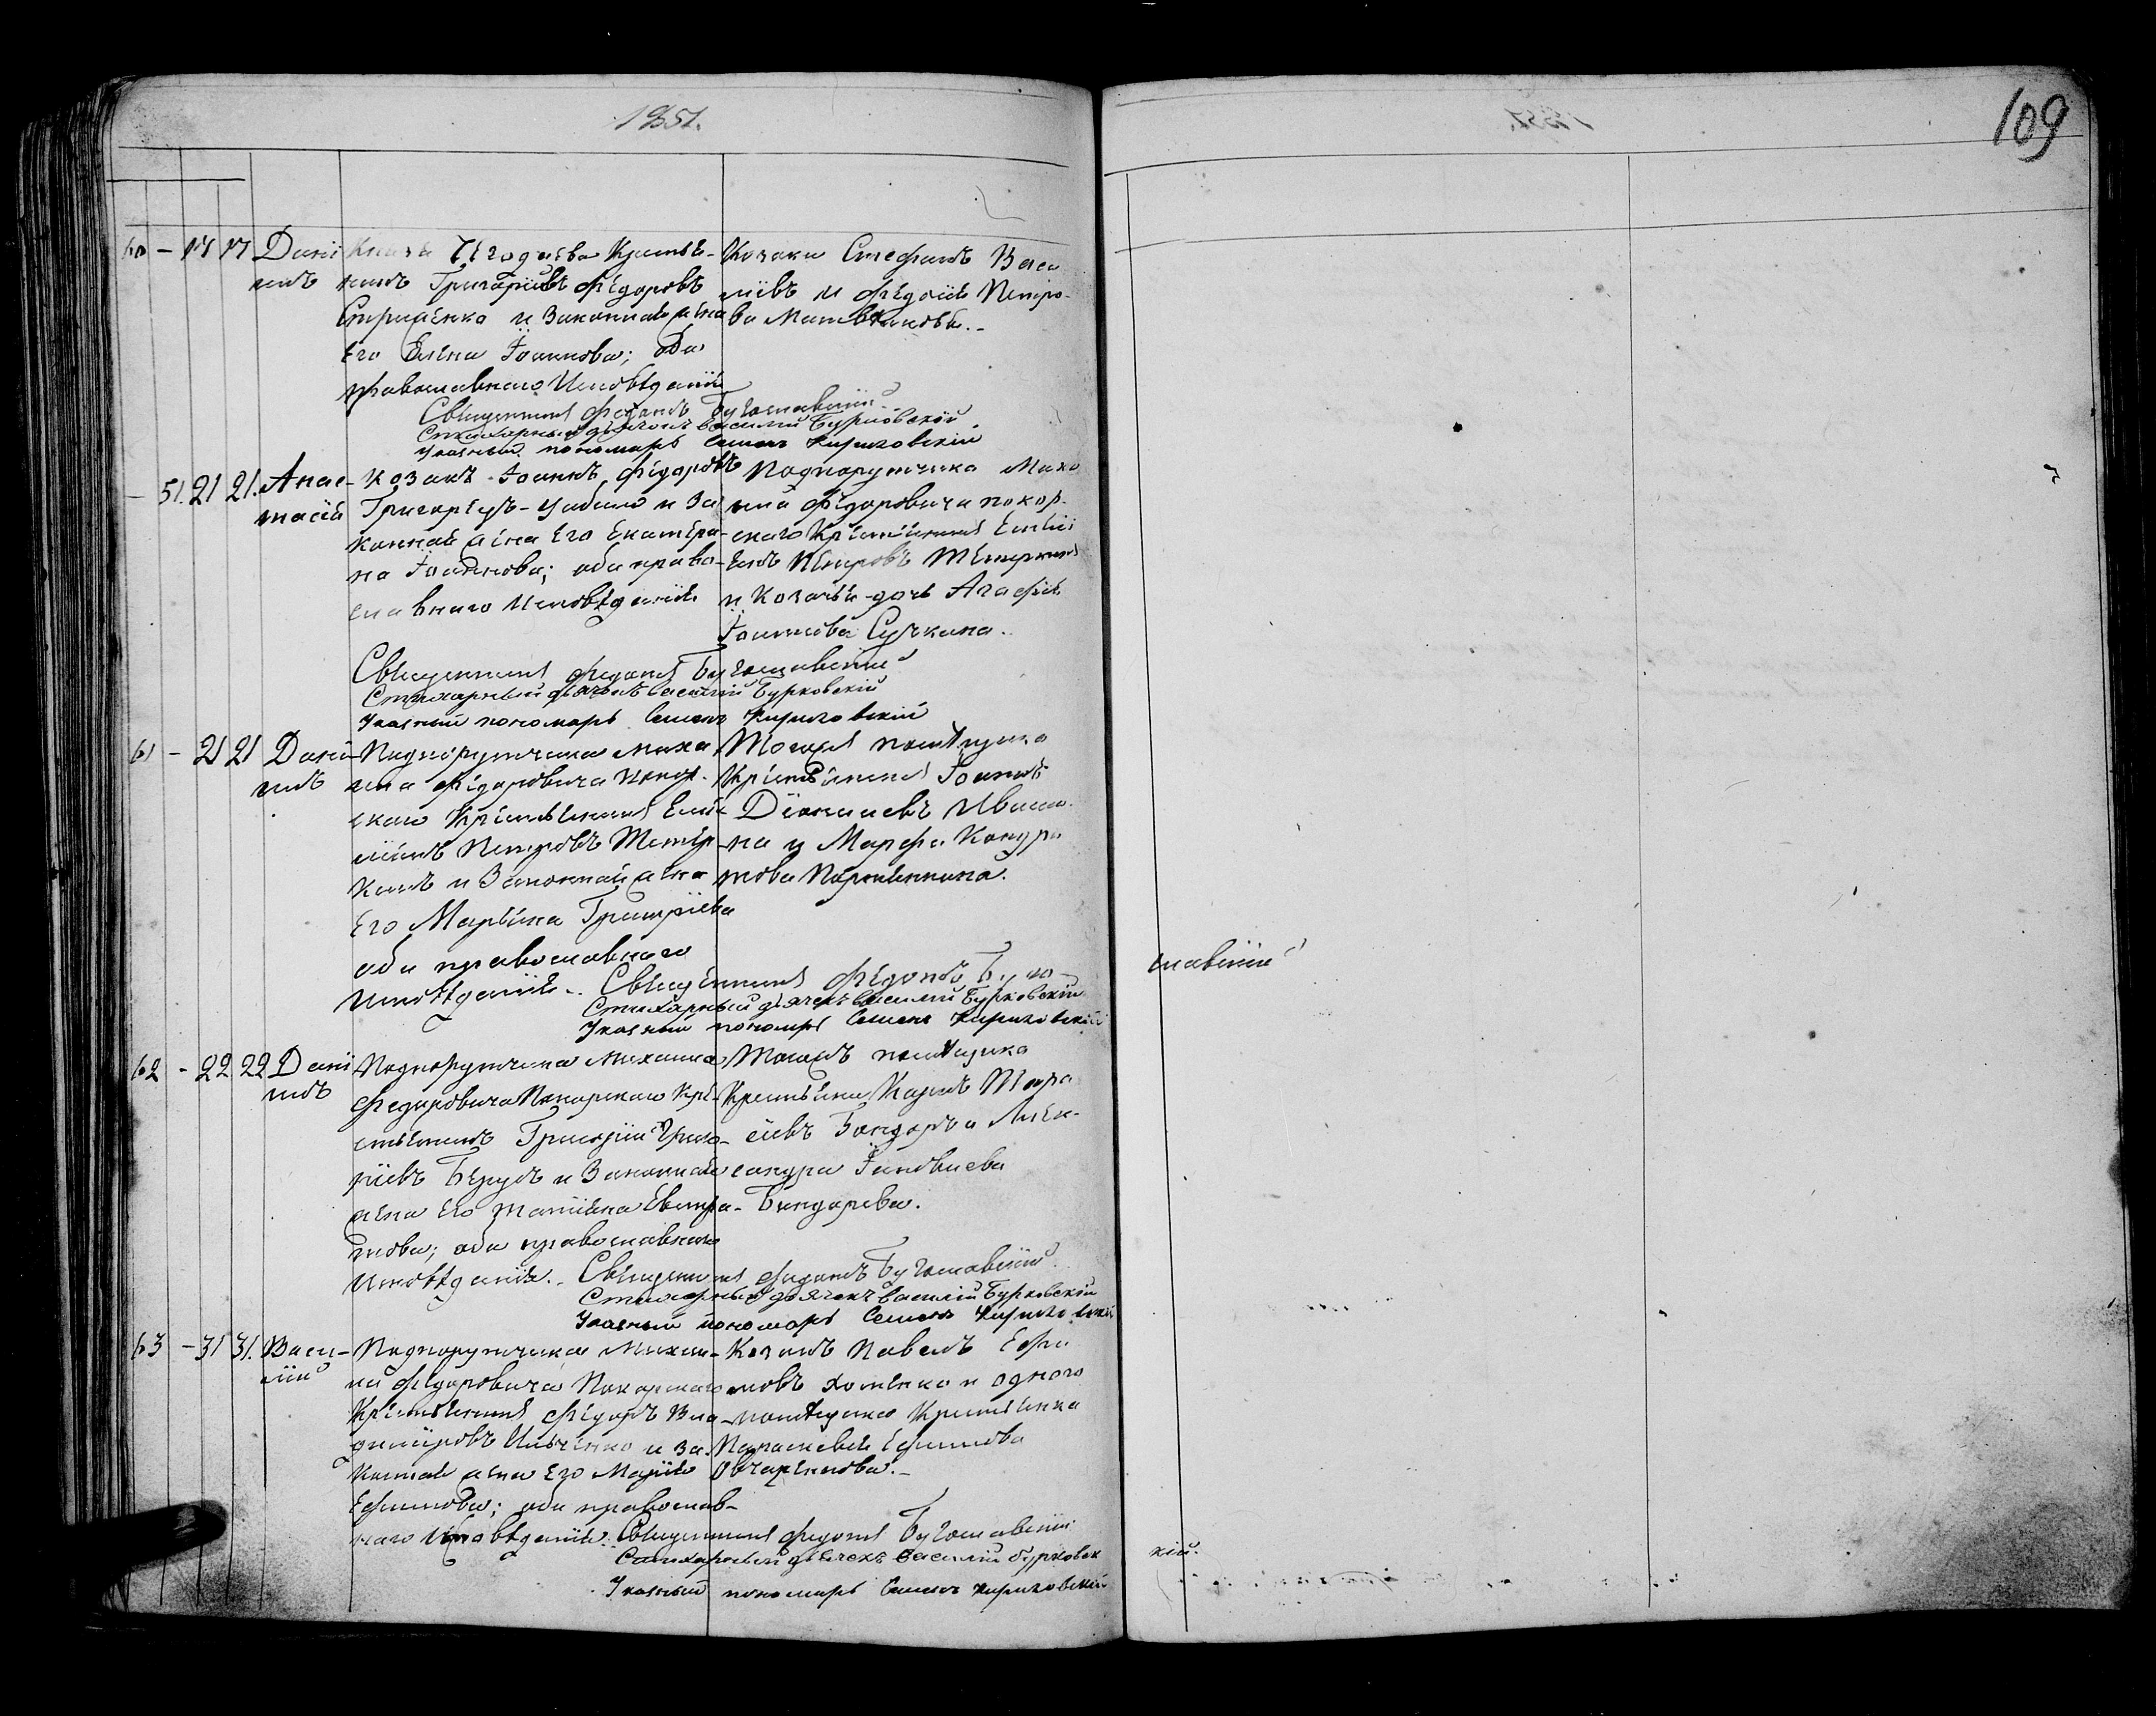 1851.
109
60 - 17 17 Дані
илъ
Князя Кресть-
янинъ Григоріевъ Федоровъ
и Законная жена
Его Елена Іоаннова; оба
православнаго Исповѣданія
Козаки Стефанъ Васи
ліевъ и Федосія Петро-
ва
Священникъ Федотъ Богославскій
Стихарный дьячекъ Василий Бурковскій
Указный пономарь Семенъ Кириловскій
- 51. 21 21. Анас-
тасія
Козакъ Іоаннъ Федоровъ
Григорецъ-Цыбаль и За
конная жена Его Екатери-
на Іоаннова; оба право-
славнаго Исповѣданія
Подпорутчика Миха
ила Федоровича Покор-
скаго Крестьянинъ Емелі
енъ Петровъ
и Козачья дочь Агафія
Іоаннова Сучкина.
Священникъ Федотъ Богославскій
Стихарный дьячекъ Василій Бурковскій
Указный пономарь Семенъ Кириловскій
61 - 21 21 Дані
илъ
Подпорутчика Миха
ила Федоровича Покор-
скаго Крестьянинъ Емел
ьянъ Петровъ
и Законная жена
Его Марьяна Григоріева
оба православнаго
Исповѣданія.
Тогожъ помѣщика
Крестьянинъ Іоаннъ
Діонисіевъ
на и Марфа Кондра
това
Священникъ Федотъ Бого-
славскій
Стихарный дьячекъ Василий Бурковскій
Указный пономарь Семенъ Кириловскій
62 - 22 22 Дані
илъ
Подпорутчика Михаила
Федоровича Покорскаго Кре-
стьянинъ Григорій Григо-
ріевъ и Законная
жена Его Татіяна Евстра-
това; оба православнаго
Исповѣданія.
Тогожъ помѣщика
Крестьяни Карпъ
евъ Бондарь и Алек-
сандра Іаковлева
Бондарева.
Священникъ Федотъ Богославскій
Стихарный дьячекъ Василій Бурковскій
Указный пономарь Семенъ Кириловскій
63 - 31 31. Васи-
лій
Подпорутчика Михаи-
ла Федоровича Покорскаго
Крестьянинъ Федоръ Вла-
диміровъ Ильченко и За-
конная жена Его Марія
Ефимова; оба православ-
наго Исповѣданія.
Козакъ Павелъ Ефи
мовъ Хоменко и одного
помѣщика Крестьянка
Параскевія Ефимова
Овчаренкова.
Священникъ Федотъ Богославскій
Стихарный дьячекъ Василий Бурковск
кій.
Указный пономарь Семенъ Кириловскій